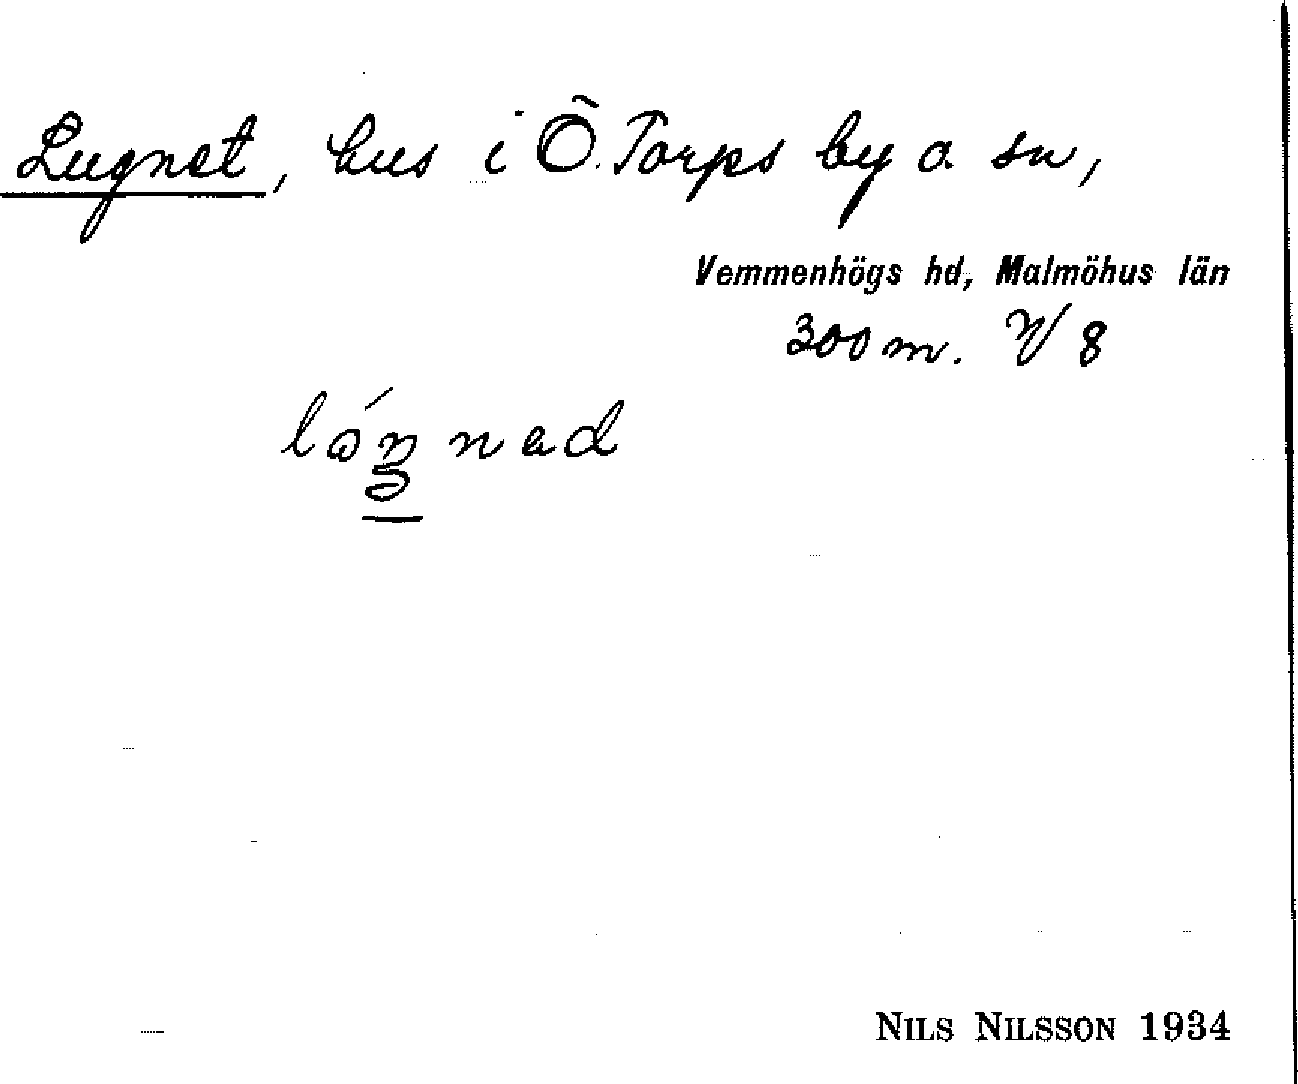 Lugnet, hus i Ö. Torps by o. sn,
Vemmenhögs hd, Malmöhus län
300 m. V/8
NILS NILSSON 1934